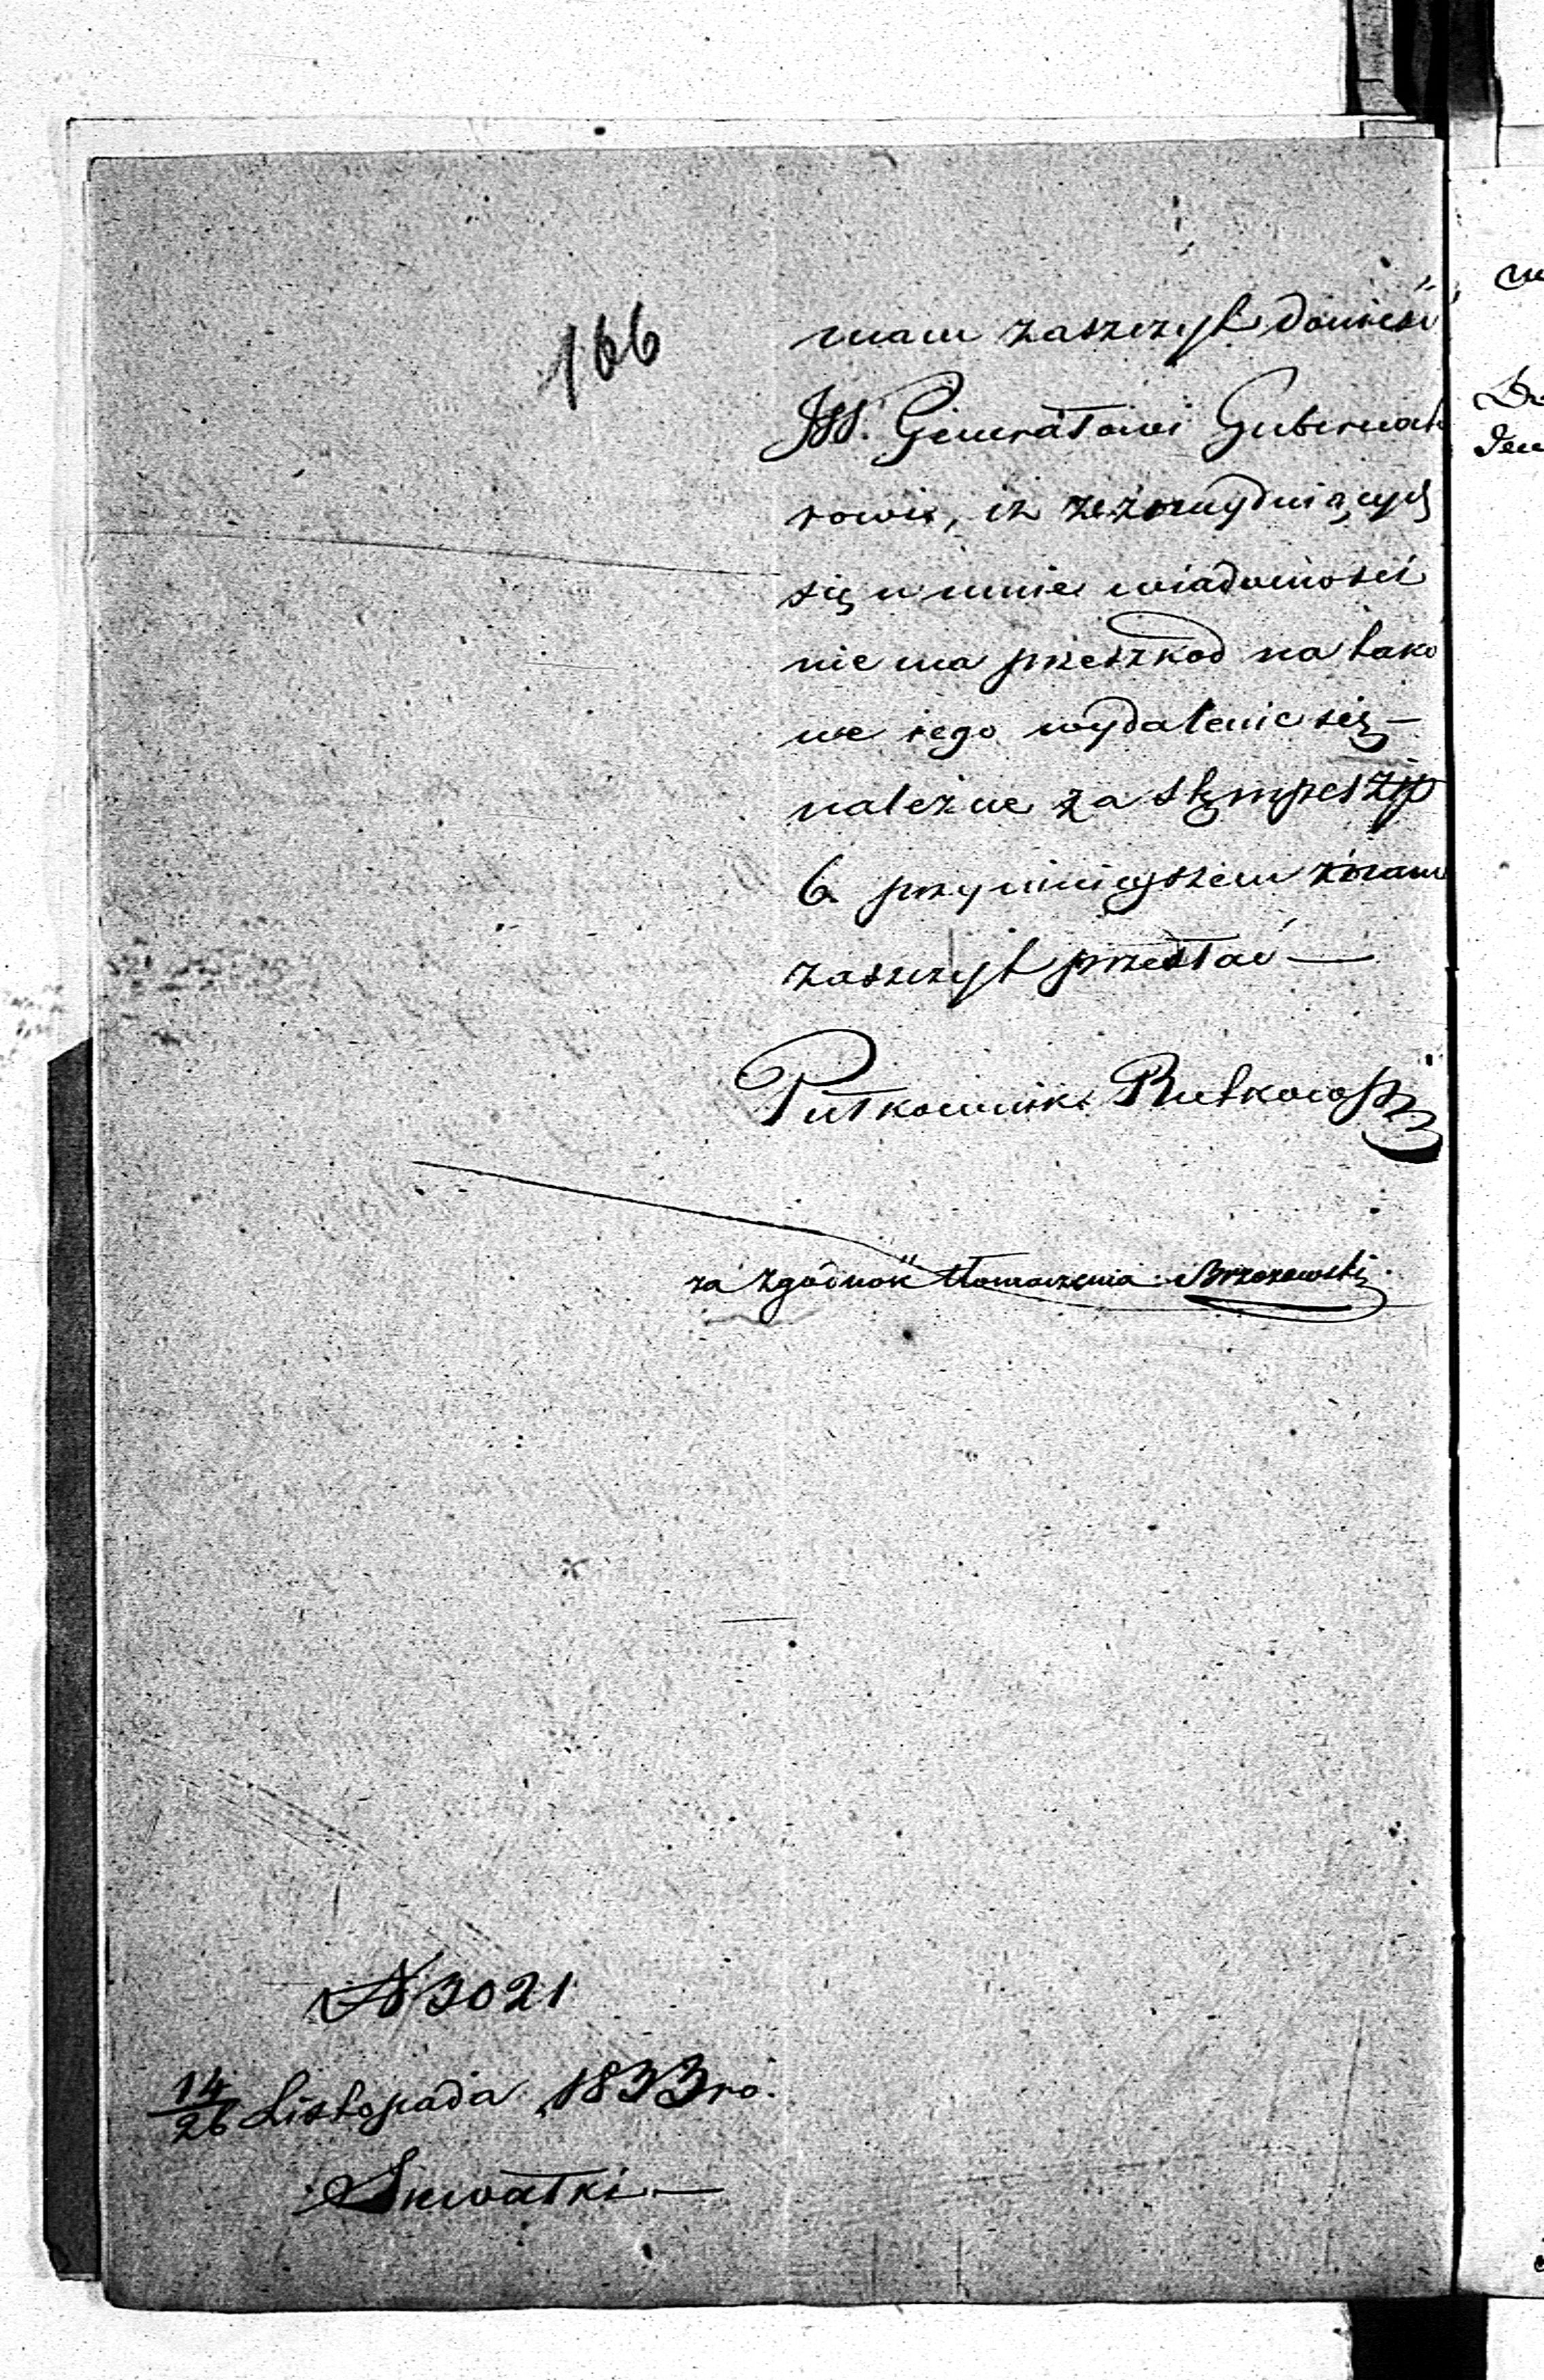 166
mam zaszczyt donieść
JW. Generałowi Gubernato
rowi, iż ze znaydujących
się u mnie wiadomości
nie ma przeszkod na tako
we iego wydalenie się —
należne za stęmpel złp
6 przy ninieyszem mam
zaszczyt przesłać —
Pułkownik Rutkowski
za zgodność tłomaczenia Brzozowski
N 3021
14/26 Listopada 1833 ro.
Suwałki —